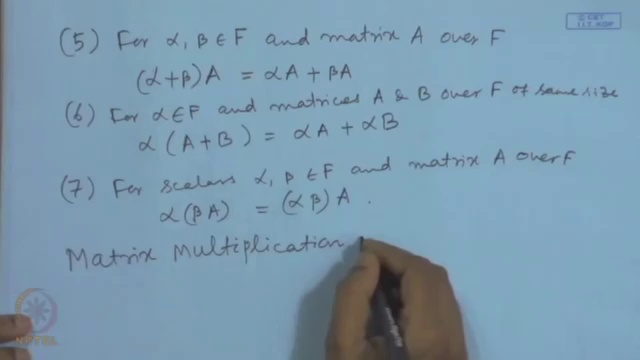 © CET
I.I.T. KGP
(5) For α, β ∈ F and matrix A over F
(α+β)A = αA + βA
(6) For α∈F and matrices A & B over F of same size
α (A+B) = αA + αB
(7) For scalars α, β ∈ F and matrix A over F
α(βA) = (αβ)A.
Matrix Multiplication
NPTEL